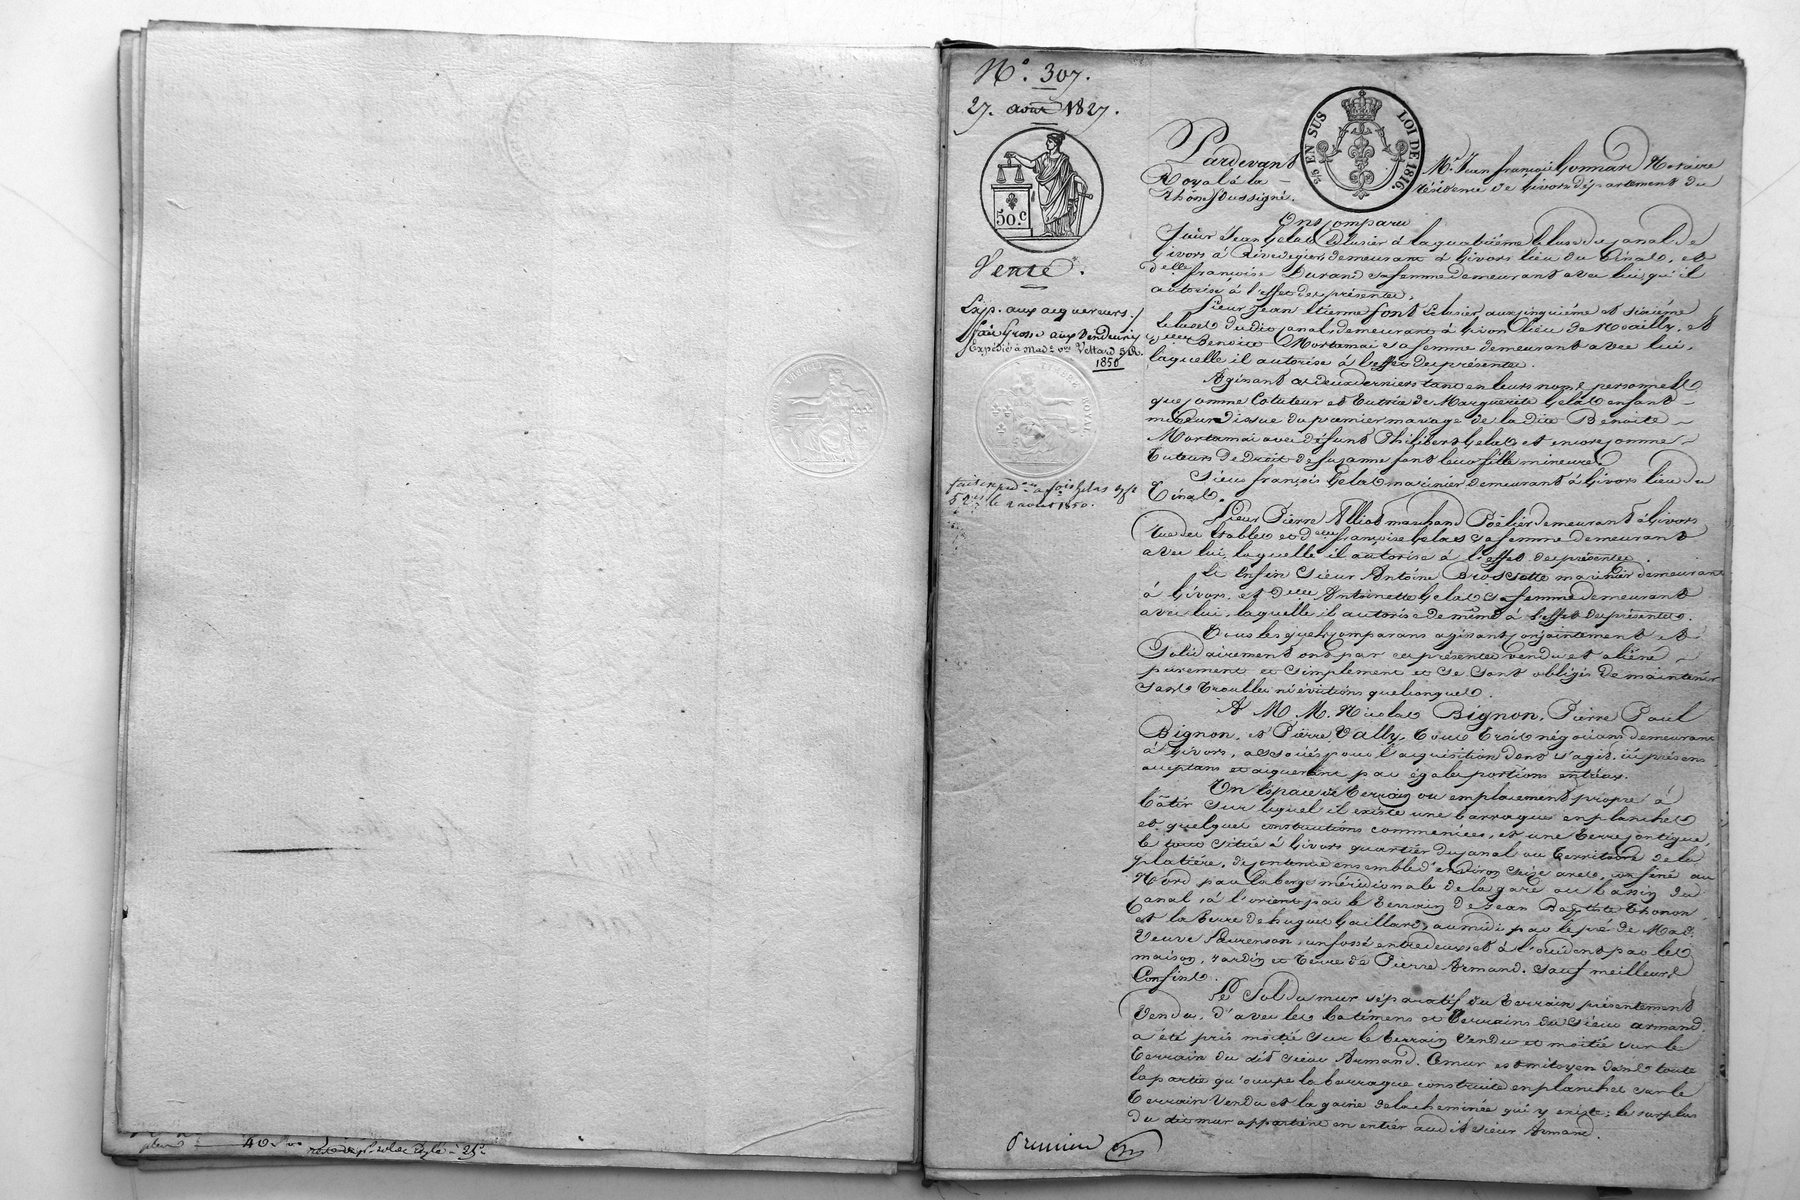 N.° 307.
27. août 1827.
50.c
EN SUS LOI DE 1816
Vente.
Exp. aux acquereurs.
fait Grosse aux Vendeurs
Expédié à Mad.e v.ve Vettard
1850
le 2 aout 1850.
Pardevant M.e Jean françois Gonnard Notaire
Royal à la résidence de Givors département du
Rhône soussigné.
Ont comparu
Sieur Jean Gelas Eclusier à la quatrième Ecluse du Canal de
Givors à Rivedegier, demeurant à Givors lieu du Tinal, et
d.elle françoise Durand sa femme demeurant avec lui, qu'il
autorise à l'effet des présentes.
Sieur Jean Etienne font Eclusier aux cinquième et sixième
Ecluses du dit Canal, demeurant à Givors lieu de Moailly, et
d.elle Benoite Mortamai sa femme demeurant avec lui,
laquelle il autorise à l'effet des présentes.
Agissant ces deux derniers tant en leurs noms personnels
que comme Cotuteur et Tutrice de Marguerite Gelas enfant
mineur issue du premier mariage de la dite Benoite
Mortamai avec défunt Philibert Gelas et encore comme
Tuteurs de droit de Suzanne font leur fille mineure
Sieur françois Gelas marinier demeurant à Givors lieu du
Tinal.
Sieur Pierre Alliod marchand Poëlier demeurant à Givors
Rue des Etables et d.elle françoise Gelas sa femme demeurant
avec lui, laquelle il autorise à l'effet des présentes.
Et Enfin Sieur Antoine Brossette marinier demeurant
à Givors, et d.elle Antoinette Gelas sa femme demeurant
avec lui, laquelle il autorise de même à l'effet des présentes.
Tous lesquels comparans agissant conjointement et
Solidairement ont par ces présentes vendu et aliéné
purement et simplement et se sont obligés de maintenir
sans troubles ni évictions quelconques.
A M.M. Nicolas Bignon, Pierre Paul
Bignon, et Pierre Vally, tous trois négocians demeurant
à Givors, associés pour l'acquisition dont s'agit, ici présens
acceptans et acquerant par égales portions entr'eux.
Un Espace de terrain ou emplacement propre à
bâtir sur lequel il existe une barraque en planches
et quelques constructions commencées, et une terre contigue,
le tout situé à Givors quartier du Canal au territoire de la
platière, de contenue ensemble d'environ seize ares, confiné au
Nord par la berge méridionale de la gare ou bassin du
Canal, à l'orient par le terrain de Jean Baptiste Thonon
et la terre de hugues Gaillard, au midi par le pré de Mad.
Veuve Laurenson, un fossé entredeux et à l'occident par les
maison, Jardin et terre de Pierre Armand. Sauf meilleurs
Confins.
Le Sol du mur séparatif du terrain présentement
Vendu, d'avec les batimens et terrains du sieur Armand
a été pris moitié sur le terrain vendu et moitié sur le
terrain du dit sieur Armand. Ce mur est mitoyen dans toute
la partie qu'occupe la barraque construite en planches sur le
terrain Vendu et la gaine de la cheminée qui y existe; le surplus
du dit mur appartient en entier au dit sieur Armand.
Premier